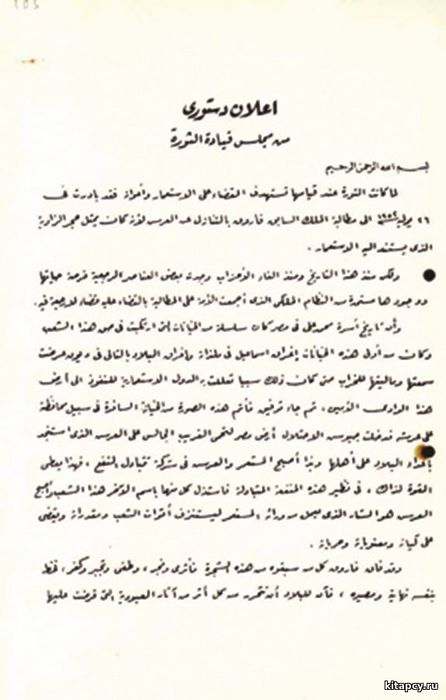 اعلان دستورى
من مجلس قيادة الثورة
بسم الله الرحمن الرحيم
لما كانت الثورة عند قيامها تستهدف القضاء على الاستعمار وأعوانه فقد بادرت فى
٢٦ يوليه ١٩٥٢ الى مطالبة الملك السابق فاروق بالتنازل عن العرش لأنه كان يمثل حجر الزاوية
الذى يستند اليه الاستعمار .
ولكن منذ هذا التاريخ ومنذ الغاء الأحزاب وجدت بعض العناصر الرجعية فرصة حياتها
ووجودها مستمدة من النظام الملكى الذى أجمعت الأمة على المطالبة بالقضاء عليه قضاء لا رجعة فيه .
وأن تاريخ أسرة محمد على فى مصر كان سلسلة من الخيانات التى ارتكبت فى حق هذا الشعب
وكان من أولى هذه الخيانات إغراق اسماعيل فى ملذاته وإغراق البلاد بالتالى فى ديون عرضت
سمعتها وماليتها للخراب حتى كان ذلك سببا تعللت به الدول الاستعمارية للنفوذ الى أرض
هذا الوادى الأمين ، ثم جاء توفيق فأتم هذه الصورة من الخيانة السافرة فى سبيل محافظته
على عرشه فدخلت جيوش الاحتلال أرض مصر لتحمى الغريب الجالس على العرش الذى استنجد
بأعداء البلاد على أهلها وبذا أصبح المستعمر والعرش فى شركة تتبادل النفع ، فهذا يعطى
القوة لذاك ، فى نظير هذه المنفعة المتبادلة فاستذل كل منهما باسم الآخر هذا الشعب وأصبح
العرش هو الستار الذى يعمل من ورائه المستعمر ليستنزف أقوات الشعب ومقدراته ويقضى
على كيانه ومعنوياته وحرياته .
وقد فاق فاروق كل من سبقوه من هذه الشجرة فأثرى وفجر ، وطغى وتجبر وكفر ، فخط
بنفسه نهايته ومصيره ، فآن للبلاد أن تتحرر من كل أثر من آثار العبودية التى فرضت عليها
kitapcy.ru